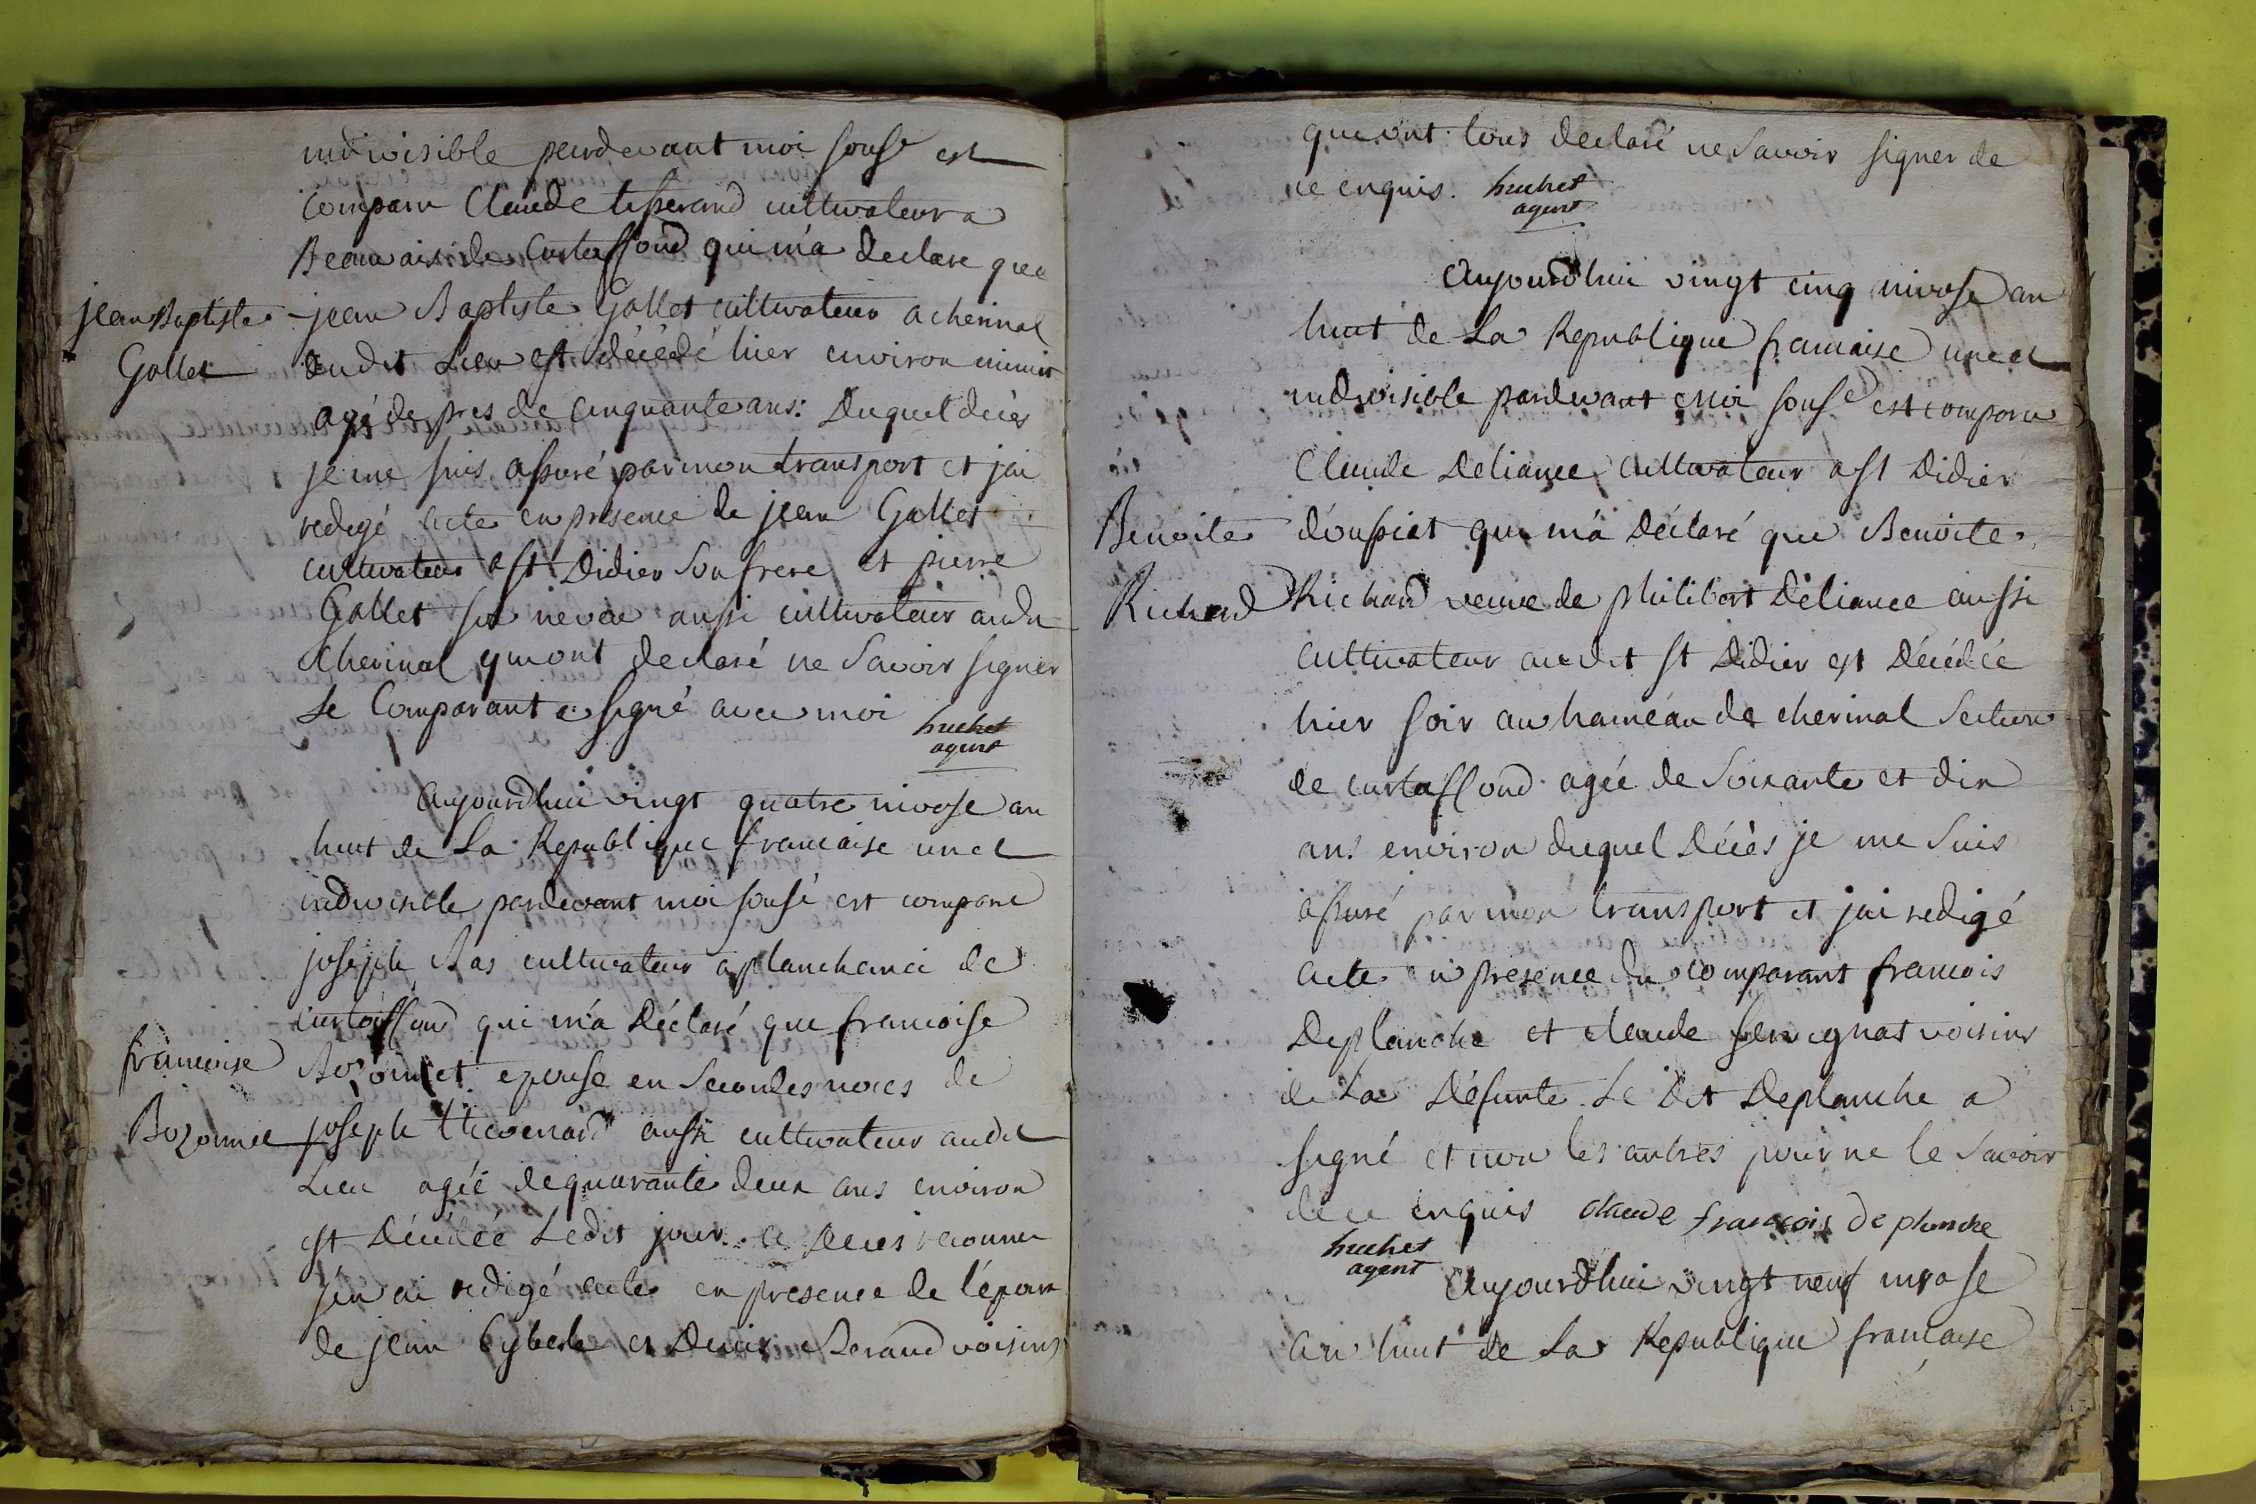 indivisible pardevant moi souse est
comparu Claude tisserand cultivateur a
Beauvais de Curtaffond qui m'a declare que
jean Baptiste
jean Baptiste Gollet cultivateur a cherinal
Gollet
dudit Lieu est décédé hier environ minuit
agé de pres de cinquante ans: Duquel décès
je me suis assuré par mon transport et jai
redigé acte en presence de jean Gollet
cultivateur a st Didier son frere et pierre
Gollet son neveu aussi cultivateur audit
cherinal qui ont declaré ne Savoir signer
Le Comparant a signé avec moi
huchet
agent
aujourdhui vingt quatre nivose an
huit de La Republique francaise une et
indivisible pardevant moi sousé est comparu
joseph Bas cultivateur a planchemei de
curtaffond qui m'a Déclaré que francoise
francoise
Bozonnet epouse en Secondes noces de
Bozonnet
joseph thevenard aussi cultivateur audit
Lieu agée de quarante deux ans environ
est Décédée Ledit jour. ce Deces reconnu
j'en ai redigé acte en presence de l'époux
de jean et Denis voisins
qui ont tous declaré ne Savoir signer de
ce enquis. huchet
agent
aujourdhui vingt cinq nivose an
huit de La Republique francaise une et
indivisible pardevant moi souse est comparu
Claude Deliance cultivateur a st Didier
Benoite
d'oussiat qui m'a Déclaré que Benoite
Richard
Richard veuve de philibert Déliance aussi
cultivateur audit st Didier est Décédée
hier soir au hameau de cherinal Section
de curtaffond agée de Soixante et dix
ans environ duquel Décès je me Suis
assuré par mon transport et jai redigé
acte en presence du comparant francois
Deplanche et claude voisins
de La Défunte. Le Dit Deplanche a
signé et non les autres pour ne le Savoir
de ce enquis claude francois De planche
huchet
agent
aujourdhui vingt neuf nivose
an huit de La Republique francaise